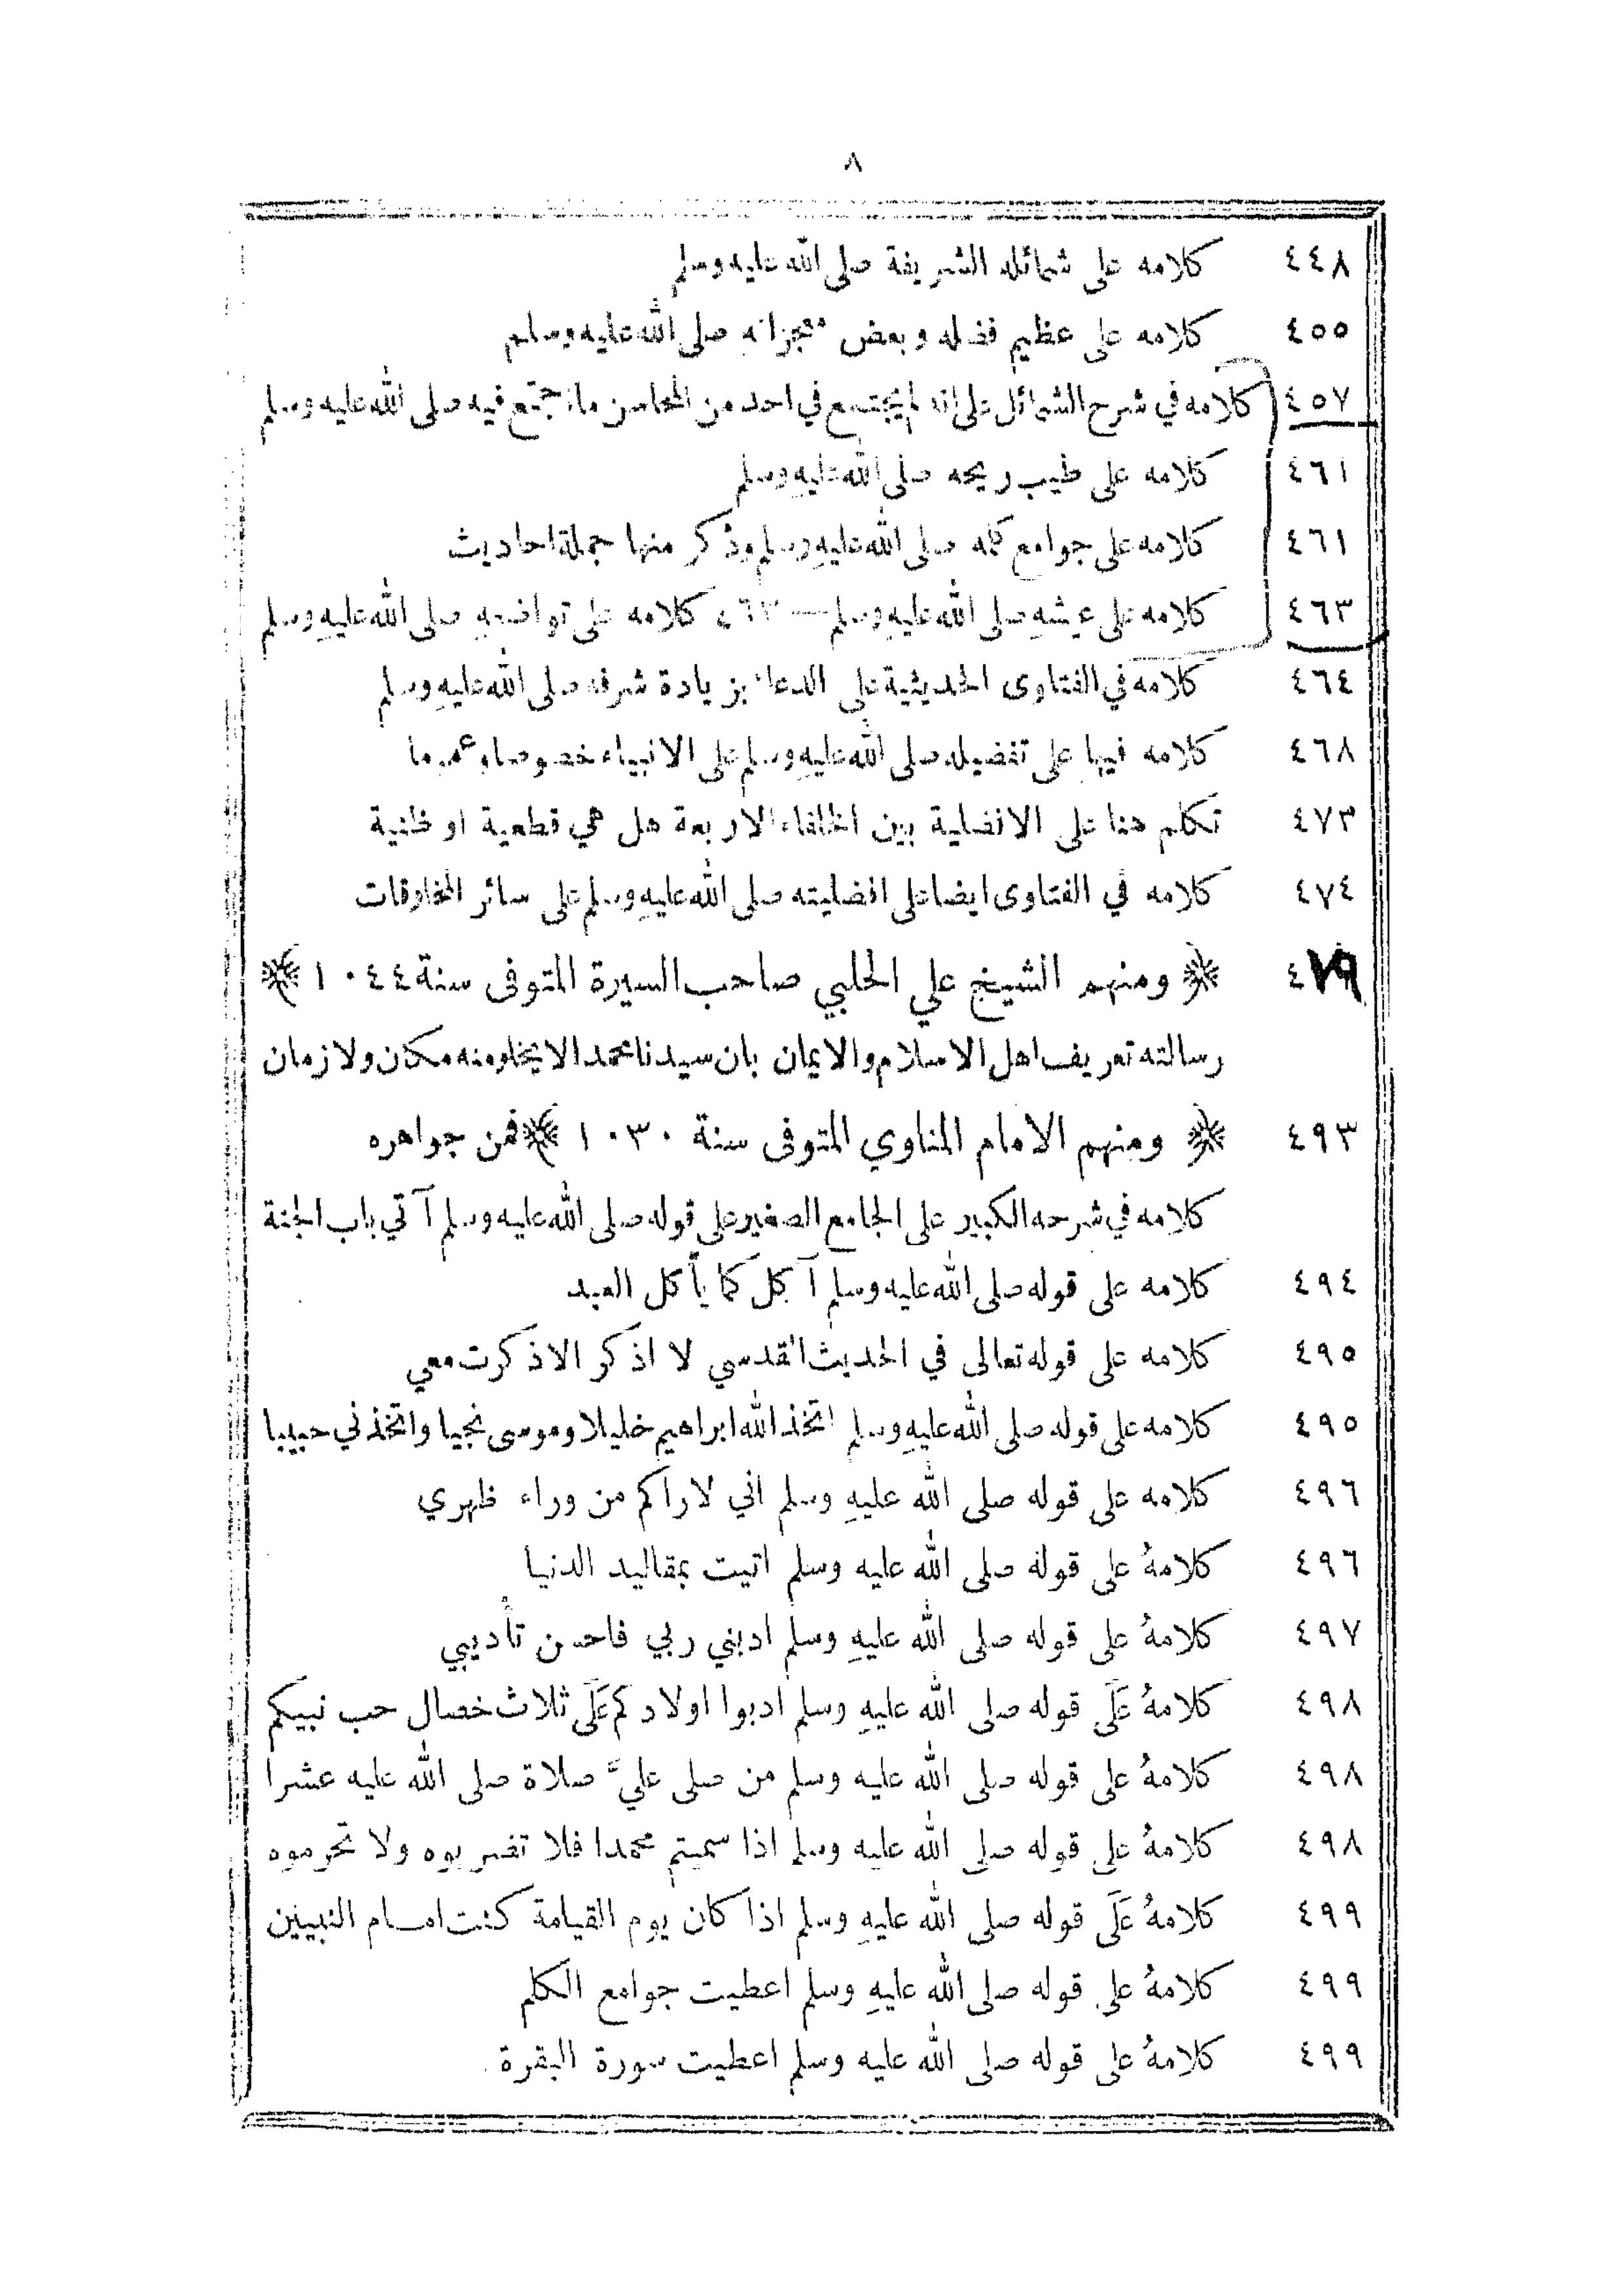 ٨
٤٤٨ كلامه على شمائله الشريفة صلى الله عليه وسلم
٤٥٥ كلامه على عظيم فضله وبعض معجزاته صلى الله عليه وسلم
٤٥٧ كلامه في شرح الشمائل على انه لم يجتمع في احد من المحاسن ما اجتمع فيه صلى الله عليه وسلم
٤٦١ كلامه على طيب ريحه صلى الله عليه وسلم
٤٦١ كلامه على جوامع كلمه صلى الله عليه وسلم وذكر منها جملة احاديث
٤٦٣ كلامه على عيشه صلى الله عليه وسلم — ٤٦٣ كلامه على تواضعه صلى الله عليه وسلم
٤٦٤ كلامه في الفتاوى الحديثية على الدعاء بزيادة شرفه صلى الله عليه وسلم
٤٦٨ كلامه فيها على تفضيله صلى الله عليه وسلم على الانبياء خصوصا وعموما
٤٧٣ تكلم هنا على الافضلية بين الخلفاء الاربعة هل هي قطعية او ظنية
٤٧٤ كلامه في الفتاوى ايضا على افضليته صلى الله عليه وسلم على سائر المخلوقات
٤٧٩ ﴿ ومنهم الشيخ علي الحلبي صاحب السيرة المتوفى سنة ١٠٤٤ ﴾
رسالته تعريف اهل الاسلام والايمان بان سيدنا محمدا لا يخلو منه مكان ولا زمان
٤٩٣ ﴿ ومنهم الامام المناوي المتوفى سنة ١٠٣٠ ﴾ فمن جواهره
كلامه في شرحه الكبير على الجامع الصغير على قوله صلى الله عليه وسلم آتي باب الجنة
٤٩٤ كلامه على قوله صلى الله عليه وسلم آكل كما يأكل العبد
٤٩٥ كلامه على قوله تعالى في الحديث القدسي لا اذكر الا ذكرت معي
٤٩٥ كلامه على قوله صلى الله عليه وسلم اتخذ الله ابراهيم خليلا وموسى نجيا واتخذني حبيبا
٤٩٦ كلامه على قوله صلى الله عليه وسلم اني لاراكم من وراء ظهري
٤٩٦ كلامهُ على قوله صلى الله عليه وسلم اتيت بمقاليد الدنيا
٤٩٧ كلامهُ على قوله صلى الله عليهِ وسلم ادبني ربي فاحسن تأديبي
٤٩٨ كلامهُ عَلَى قوله صلى الله عليهِ وسلم ادبوا اولادكم عَلَى ثلاث خصال حب نبيكم
٤٩٨ كلامهُ على قوله صلى الله عليه وسلم من صلى عليَّ صلاة صلى الله عليه عشرا
٤٩٨ كلامهُ على قوله صلى الله عليه وسلم اذا سميتم محمدا فلا تضربوه ولا تحرموه
٤٩٩ كلامهُ عَلَى قوله صلى الله عليهِ وسلم اذا كان يوم القيامة كنت امام النبيين
٤٩٩ كلامهُ على قوله صلى الله عليهِ وسلم اعطيت جوامع الكلم
٤٩٩ كلامهُ على قوله صلى الله عليه وسلم اعطيت سورة البقرة